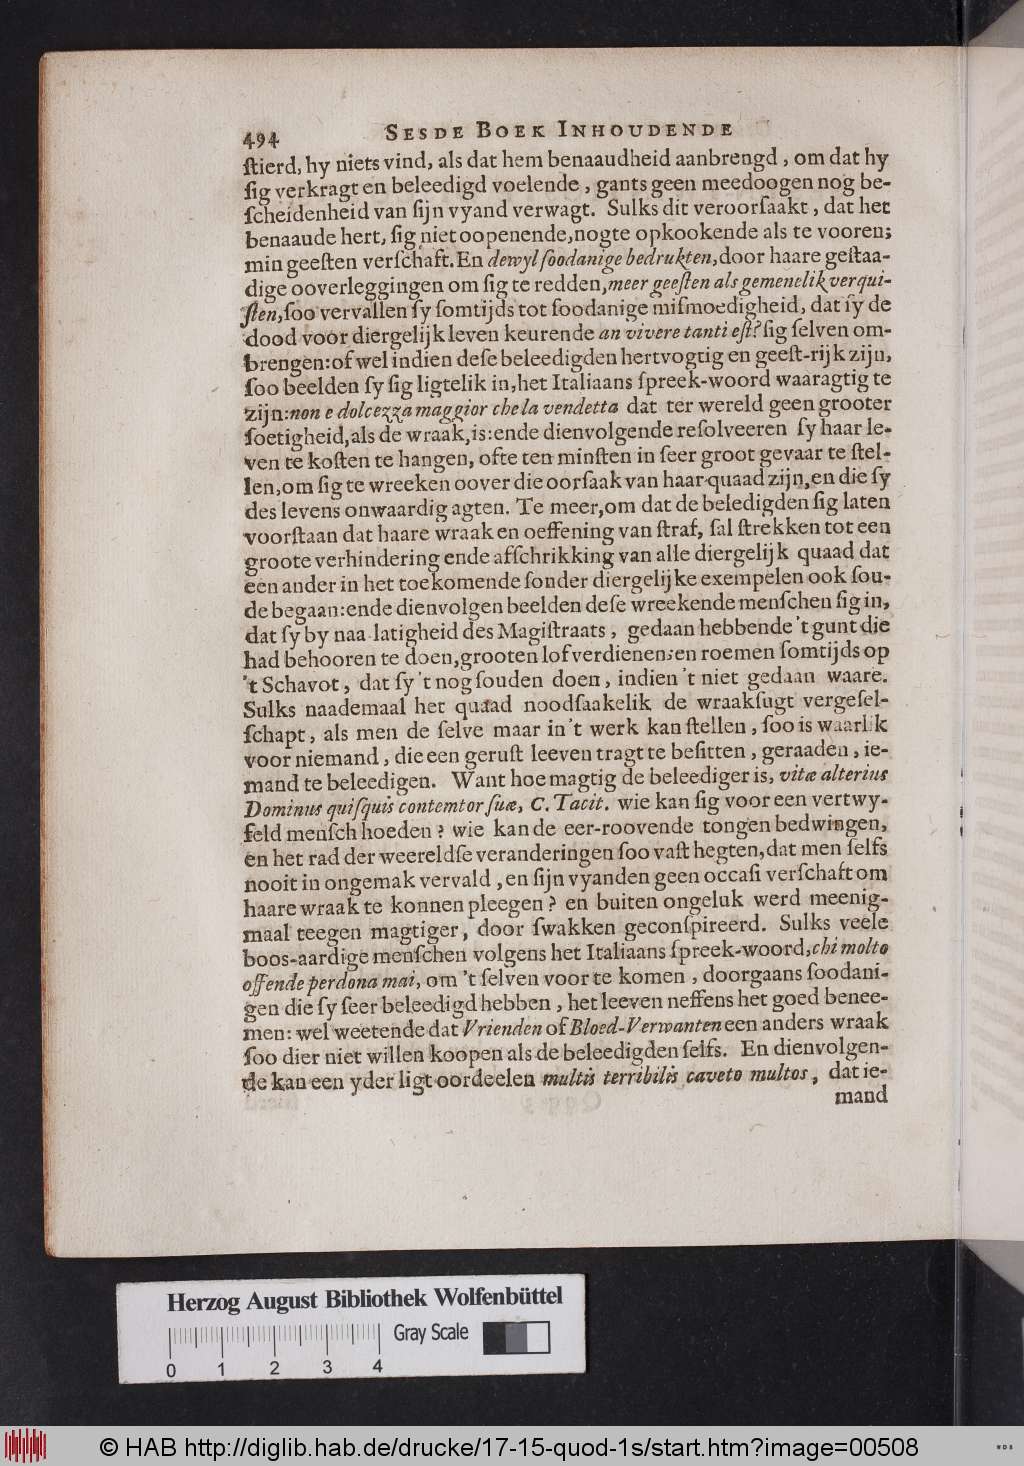 494 SESDE BOEK INHOUDENDE
ſtierd, hy niets vind, als dat hem benaaudheid aanbrengd, om dat hy
ſig verkragt en beleedigd voelende, gants geen meedoogen nog be-
ſcheidenheid van ſijn vyand verwagt. Sulks dit veroorſaakt, dat het
benaaude hert, ſig niet oopenende, nogte opkookende als te vooren;
min geeſten verſchaft. En dewyl ſoodanige bedrukten, door haare geſtaa-
dige ooverleggingen om ſig te redden, meer geeſten als gemenelik verqui-
ſten, ſoo vervallen ſy ſomtijds tot ſoodanige miſmoedigheid, dat ſy de
dood voor diergelijk leven keurende an vivere tanti eſt? ſig ſelven om-
brengen: of wel indien deſe beleedigden hertvogtig en geeſt-rijk zijn,
ſoo beelden ſy ſig ligtelik in, het Italiaans ſpreek-woord waaragtig te
zijn: non e dolcezza maggior che la vendetta dat ter wereld geen grooter
ſoetigheid, als de wraak, is: ende dienvolgende reſolveeren ſy haar le-
ven te koſten te hangen, ofte ten minſten in ſeer groot gevaar te ſtel-
len, om ſig te wreeken oover die oorſaak van haar quaad zijn, en die ſy
des levens onwaardig agten. Te meer, om dat de beledigden ſig laten
voorſtaan dat haare wraak en oeffening van ſtraf, ſal ſtrekken tot een
groote verhindering ende afſchrikking van alle diergelijk quaad dat
een ander in het toekomende ſonder diergelijke exempelen ook ſou-
de begaan: ende dienvolgen beelden deſe wreekende menſchen ſig in,
dat ſy by naalatigheid des Magiſtraats, gedaan hebbende 't gunt die
had behooren te doen, grooten lof verdienen: en roemen ſomtijds op
't Schavot, dat ſy 't nog ſouden doen, indien 't niet gedaan waare.
Sulks naademaal het quaad noodſaakelik de wraakſugt vergeſel-
ſchapt, als men de ſelve maar in 't werk kan ſtellen, ſoo is waarlik
voor niemand, die een geruſt leeven tragt te beſitten, geraaden, ie-
mand te beleedigen. Want hoe magtig de beleediger is, vitæ alterius
Dominus quiſquis contemtor ſuæ, C. Tacit. wie kan ſig voor een vertwy-
feld menſch hoeden? wie kan de eer-roovende tongen bedwingen,
en het rad der weereldſe veranderingen ſoo vaſt hegten, dat men ſelfs
nooit in ongemak vervald, en ſijn vyanden geen occaſi verſchaft om
haare wraak te konnen pleegen? en buiten ongeluk werd meenig-
maal teegen magtiger, door ſwakken geconſpireerd. Sulks veele
boos-aardige menſchen volgens het Italiaans ſpreek-woord, chi molto
offende perdona mai, om 't ſelven voor te komen, doorgaans ſoodani-
gen die ſy ſeer beleedigd hebben, het leeven neffens het goed benee-
men: wel weetende dat Vrienden of Bloed-Verwanten een anders wraak
ſoo dier niet willen koopen als de beleedigden ſelfs. En dienvolgen-
de kan een yder ligt oordeelen multis terribilis caveto multos, dat ie-
mand
Herzog August Bibliothek Wolfenbüttel
Gray Scale
0 1 2 3 4
© HAB http://diglib.hab.de/drucke/17-15-quod-1s/start.htm?image=00508